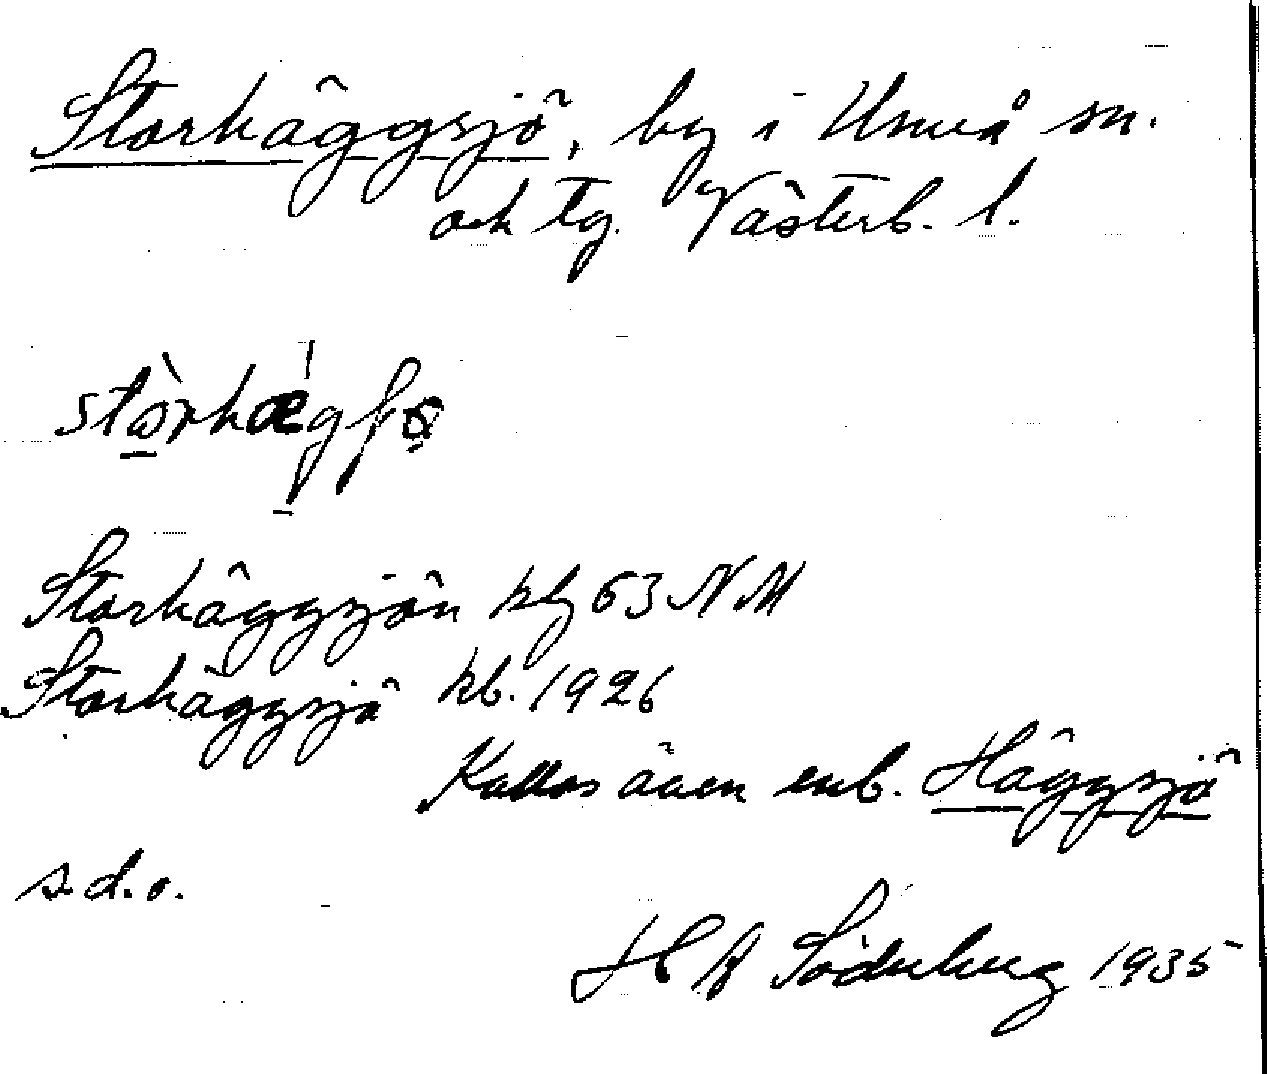 Storhäggsjö, by i Umeå sn.
och tg. Västerb. l.
stòrhǽgʃø
Storhäggsjön kbg 63 NM
Storhäggsjö kb. 1926
Kallas även enb. Häggsjö
s.d.o.
H A Söderberg 1935